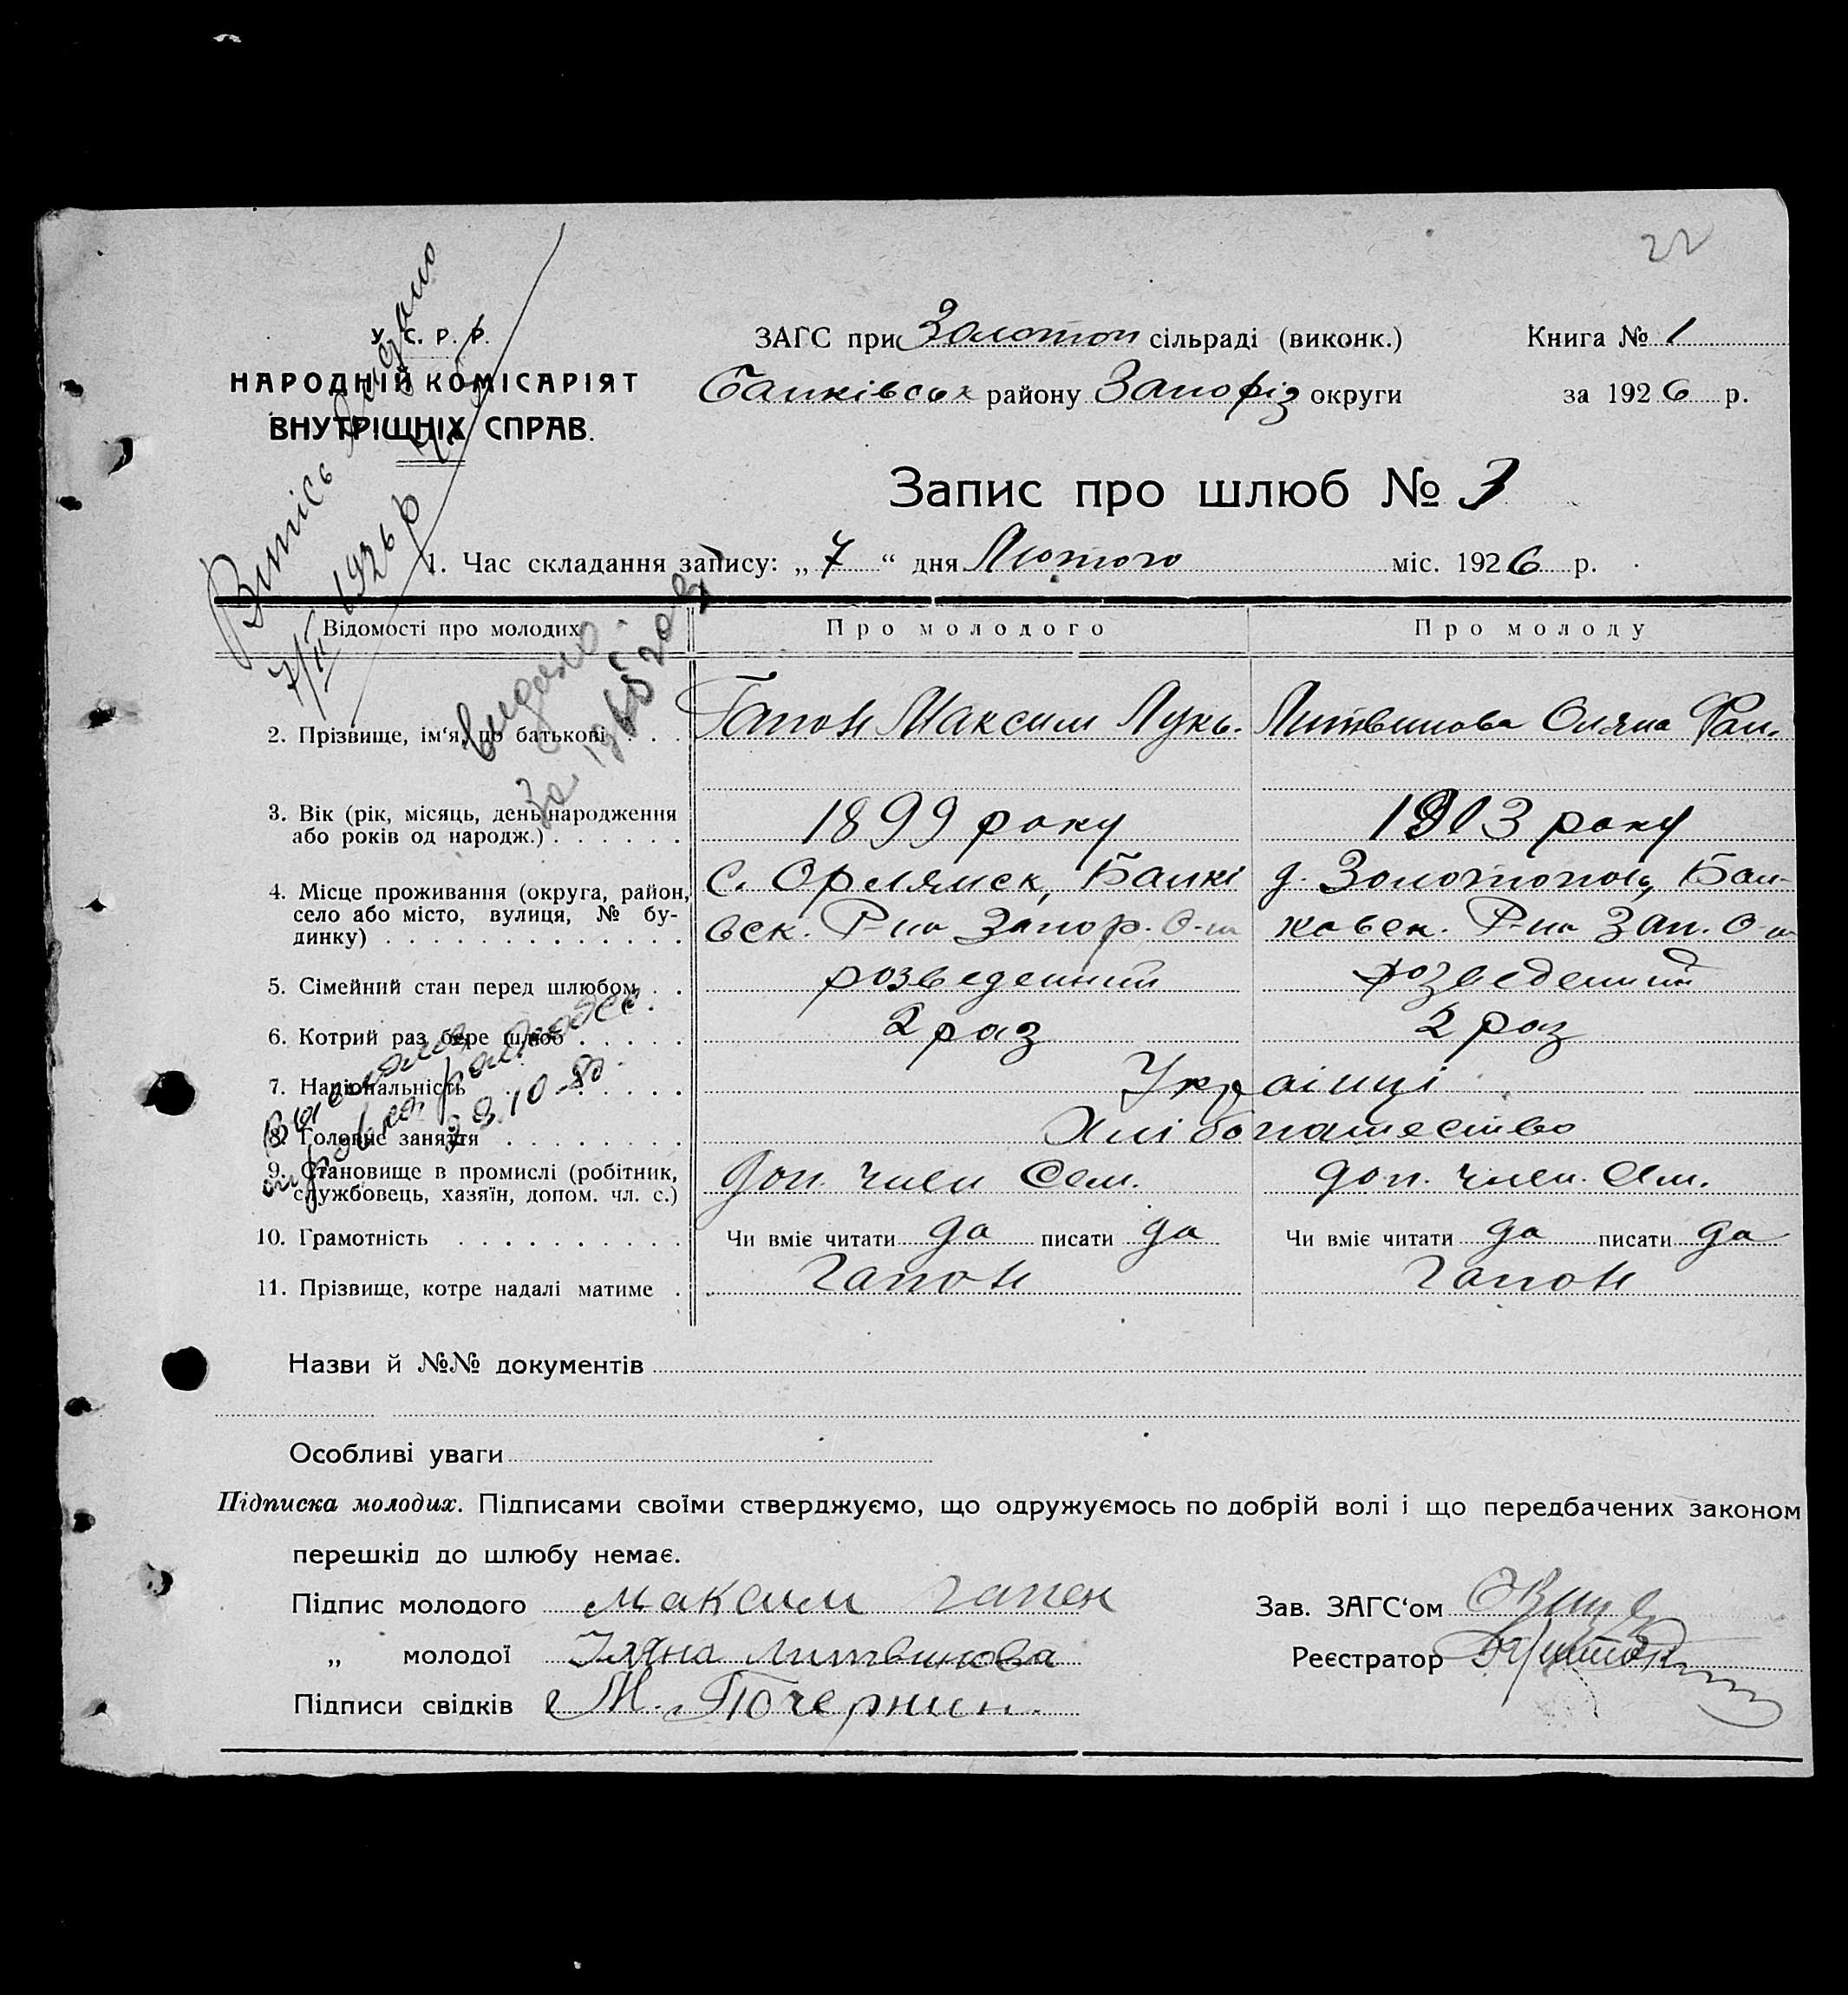 22
У. С. Р. Р.
НАРОДНІЙ КОМІСАРІЯТ
ВНУТРІШНІХ СПРАВ.
ЗАГС при Золотоп сільраді (виконк.)
Книга № 1
Балківськ району Запоріз округи
за 1926 р.
Запис про шлюб № 3
Випісь видано
7/II 1926 р
1. Час складання запису: „ 7 “ дня Лютого міс. 1926 р.
Відомості про молодих
Про молодого
Про молоду
видано
2. Прізвище, ім‘я, по батькові . . .
Гапон Максим Лукь.
Литвинова Оляна
3. Вік (рік, місяць, день народження
або років од народж.) . . . . . .
1899 року
1903 року
4. Місце проживання (округа, район,
село або місто, вулиця, № бу-
динку) . . . . . . . . . . . . .
с. Орлянск, Балкі
вск. Р-на Запор. О-и
д. Золотополь, Бал-
ковск. Р-на Зап. О-и
5. Сімейний стан перед шлюбом . .
розведенний
розведенний
6. Котрий раз бере шлюб . . . . .
2 раз
2 раз
7. Національність . . . . . . . . .
Українці
8. Головне заняття . . . . . . . .
Хлібопашество
9. Становище в промислі (робітник,
службовець, хазяїн, допом. чл. с.)
Доп. член Сем.
доп. член. Сем.
10. Грамотність . . . . . . . . . .
Чи вміє читати да писати да
Чи вміє читати да писати да
11. Прізвище, котре надалі матиме .
Гапон
Гапон
Назви й №№ документів
Особливі уваги
Підписка молодих. Підписами своїми стверджуємо, що одружуємось по добрій волі і що передбачених законом
перешкід до шлюбу немає.
Підпис молодого Максим Гапен
Зав. ЗАГС‘ом
„ молодої Іляна Литвинова
Реєстратор
Підписи свідків М.